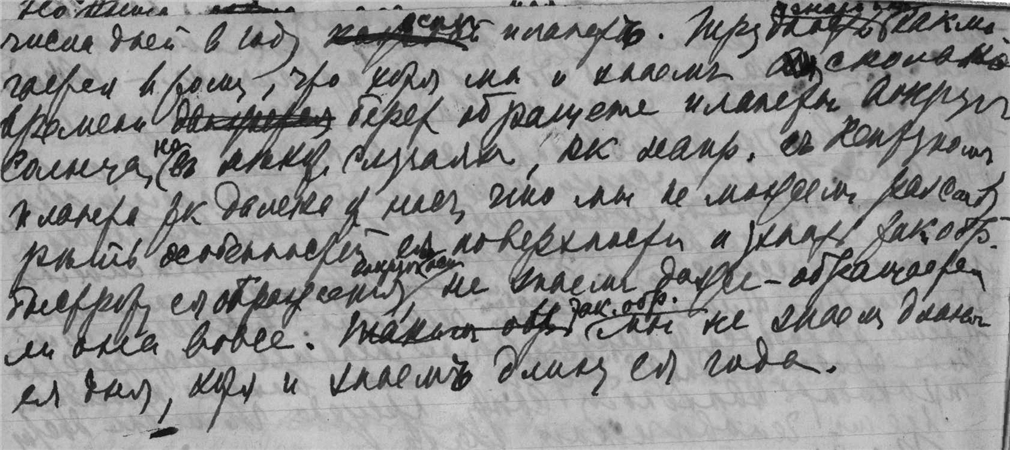 числа дней в году планетъ. Трудность заклю
чается в том, что хотя мы и знаемъ сколько
времени берет обращение планеты вокруг
Солнца, но въ иных случаях, как напр. съ Нептуномъ
планета так далека от нас, что мы не можем рассмот
рить особенностей ея поверхности и узнать, так. обр.
быстроту ея обращения вокруг оси, не знаем даже - обращается
ли она вовсе. так. обр. мы не знаем длины
ея дня, хотя и знаемъ длину ея года.